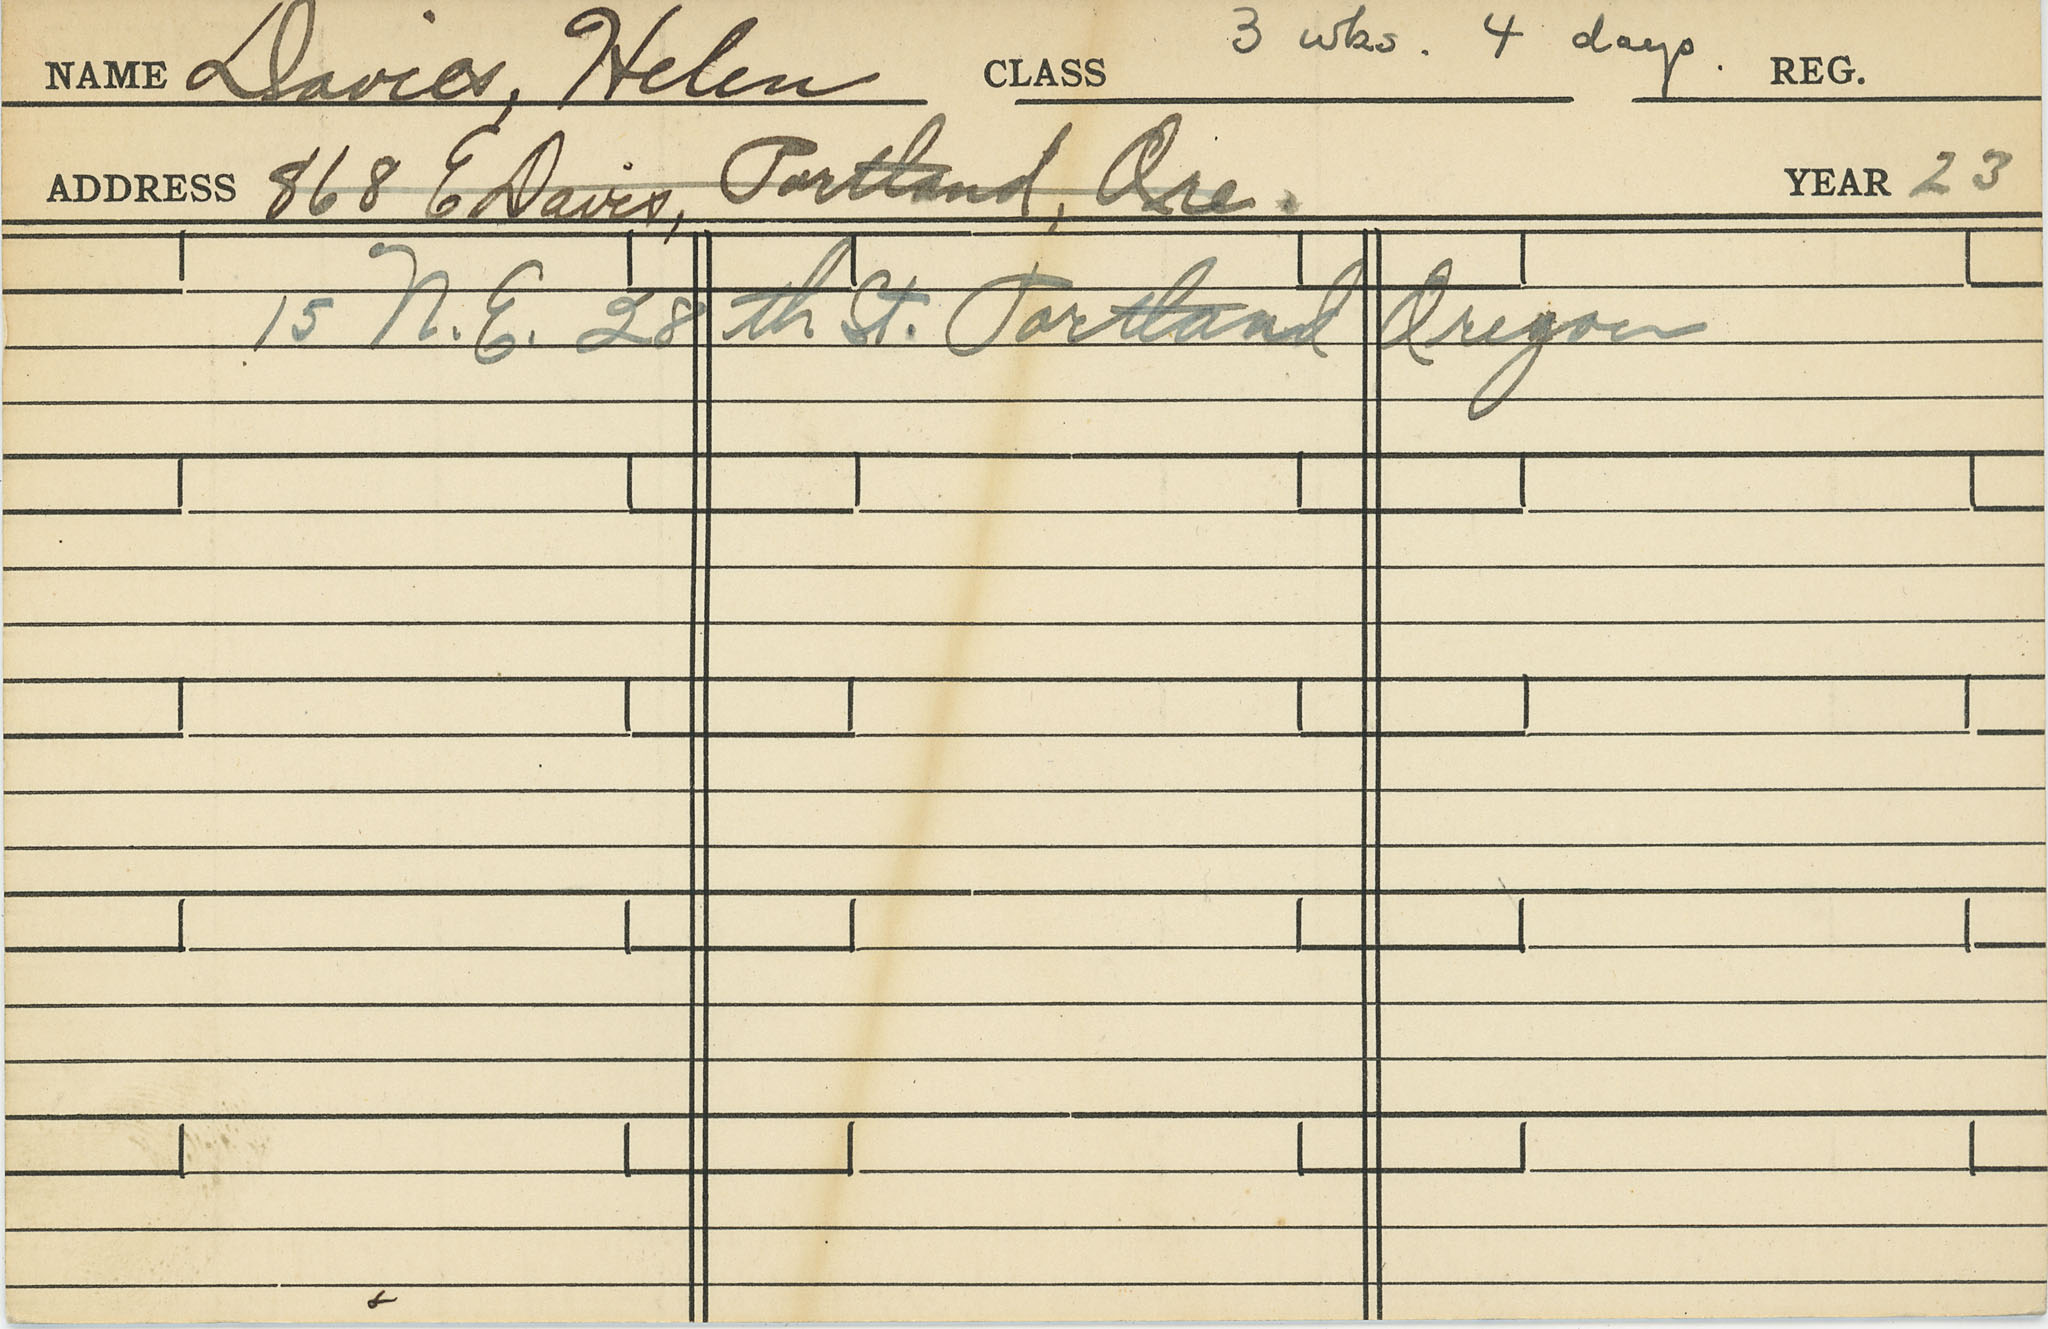 NAME Davies, Helen CLASS 3 wks. 4 days. REG.
ADDRESS 868 E Davis, Portland, Ore. YEAR 23
15 N.E. 28th St. Portland Oregon